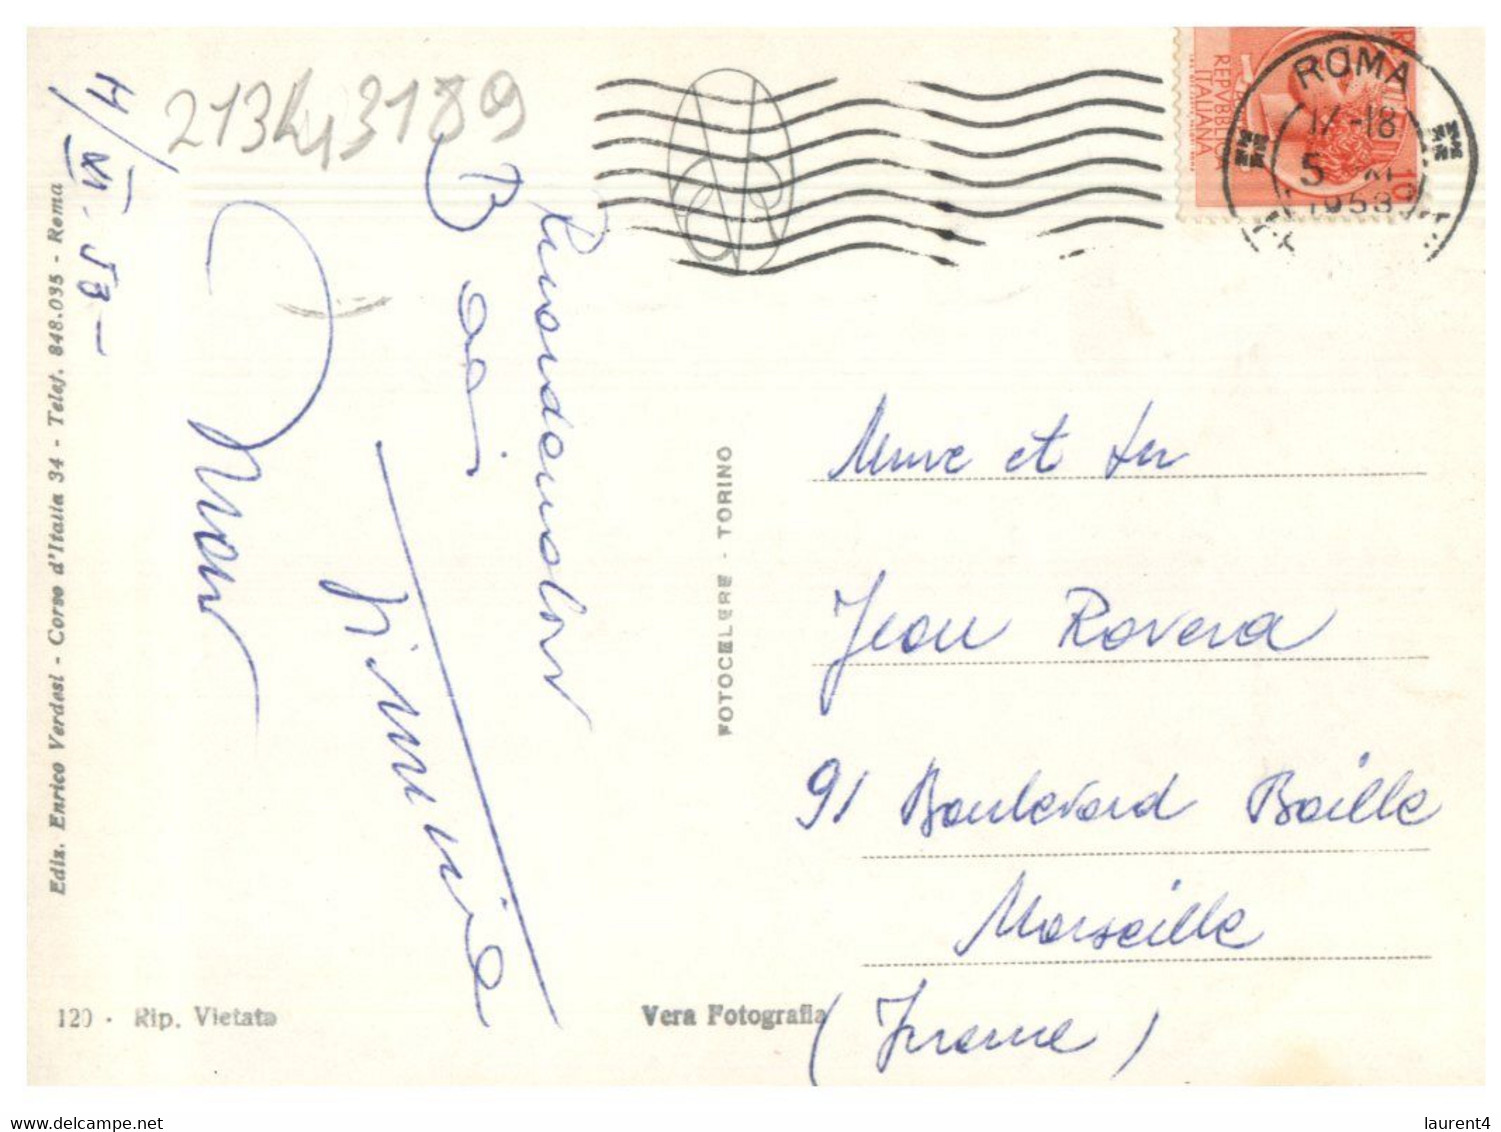 21343189
4/XI.53-
Baci
FOTOCELERE - TORINO
Ediz. Enrico Verdesi - Corso d'Italia 34 - Telef. 848.035 - Roma
120 - Rip. Vietata
Vera Fotografia
REPUBBLICA
ITALIANA
10
ROMA
17-18
5 XI
1953
et
Jean Rovera
91 Boulevard Baille
Marseille
(France)
delcampe.net
laurent4